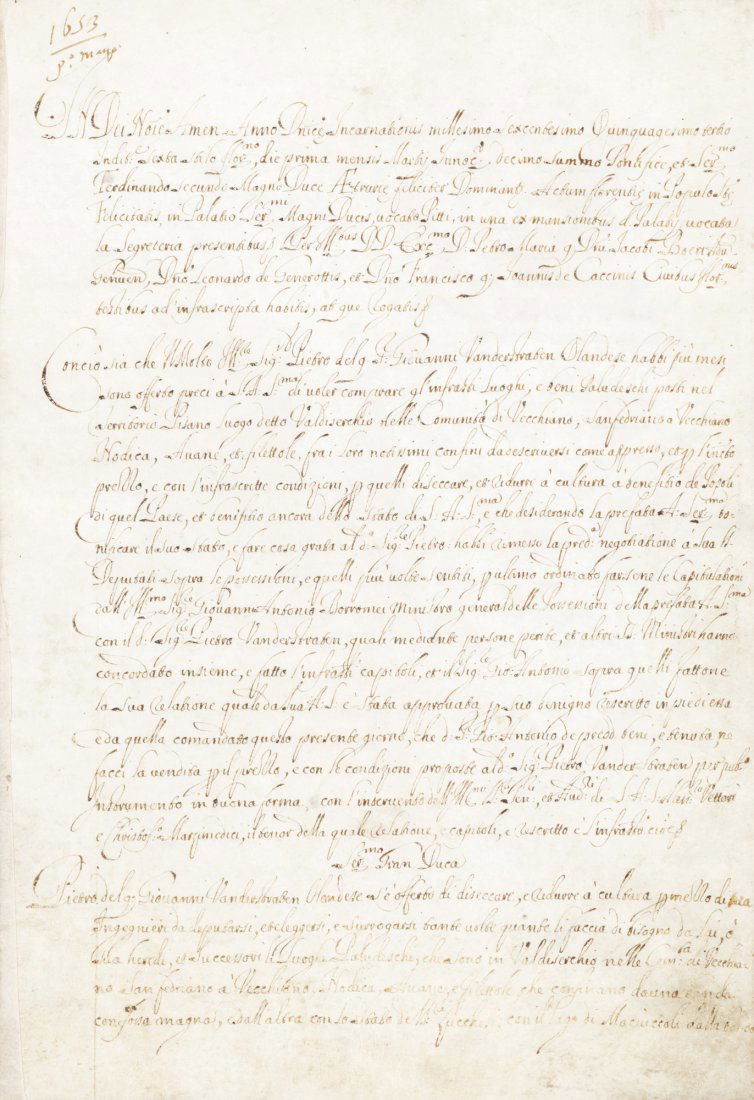 1653
p.º marzo
IN Dei Noie Amen Anno Dnice Incarnationis millesimo sexcentesimo Quinquagesimo tertio
Indite sexta stilo flor.no, die prima mensis Martij Innoc.º decimo summo Pontifice, et Ser.mo
Ferdinando secundo Magno Duce Ætrurie feliciter Dominante Actum florentie in Populo Ste
Felicitatis, in Palatio Ser.mi Magni Ducis, vocato Pitti, in una ex mansionibus d. Palatij vocata
la Segreteria presentibus Per D. D. Exc.mo D. Petro Maria q. Dni Jacobi
Genuen, Dno Leonardo de Generottis, et Dno Francisco q. Joannis de Caccinis Civibus flor.nis
testibus ad infrascripta habitis, atque Rogatis
Conciò sia che il Molto Ill.re Sig. Pietro del q. S. Giovanni Vanderstraten Olandese habbi più mesi
sono offerto preci à S. A. S.ma di voler comprare gl'infratti Luoghi, e beni Paludeschi posti nel
territorio Pisano luogo detto Valdiserchio nelle Comunità di Vecchiano, Sanfediano à Vecchiano
Nodica, Avane, et filettole, fra i loro notissimi confini da descriversi come appresso, et p l'infrto
prezzo, e con l'infrascritte conditioni, p quelli diseccare, et ridurre à cultura à benefitio de Popoli
di quel Paese, et benifitio ancora dello Stato di S. A. S.ma, e che desiderando la prefata A. Ser.ma bo-
nificare il suo Stato, e fare cosa grata al d.º Sig.re Pietro habbi rimesso la pred.a negotiatione a sua A.
Deputati sopra le possessioni, e quelli più volte sentiti, p ultimo ordinato farsene le Capitulationi
dall' Ill.mo Sig.re Giovanni Antonio Borromei Ministro general delle Possessioni della prefata A. S.ma
con il d.º Sig.re Pietro Vanderstraten, quali mediante persone perite, et altri Ministri hanno
concordato insieme, e fatto l'infratti capitoli, et il Sig.re Gio: Antonio sopra quelli fattone
la sua relatione quale da sua A. S. è stata approvata p suo benigno rescritto in piedi essa
e da quella comandatto questo presente giorno, che d. S. Gio: Antonio de predti beni, e tenuta, ne
facci la vendita p il prezzo, e con le conditioni proposte al d.º Sig.r Pietro Vanderstraten per pub.º
Instrumento in buona forma, con l'intervento dell' Sen.ri, et Aud.ri di S. A. S. Vettori
e Christof.º Marzimedici, il tenor della quale relatione, e capitoli, e rescritto è l'infratto cioè
Ser.mo Gran Duca
Pietro del q. Giovanni Vanderstraten Olandese s'è offerto di diseccare, e ridurre à cultura p mezzo di
Ingegnieri da deputarsi, et eleggersi, e surrogarsi tante volte quante li faccia di bisogno da lui, ò
sua heredi, et successori li Luoghi Paludeschi, che sono in Valdiserchio nelle Com.tà di Vecchia-
no Sanfediano à Vecchiano, Nodica, Avane, e filettole che confinano da una banda
con fossa magna, e dall'altra con lo Stato de SS.ri Lucchesi, con il lago di Maciuccoli